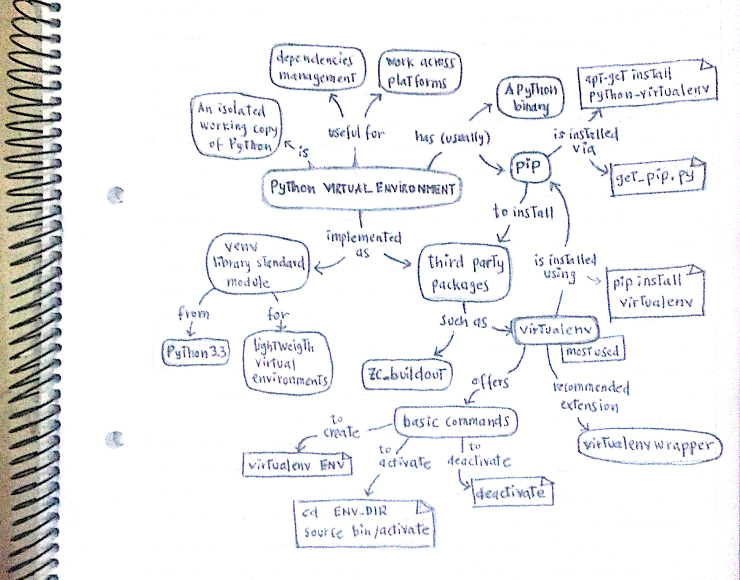 dependencies
management
work across
platforms
A Python
binary
apt-get install
python-virtualenv
An isolated
working copy
of Python
is
useful for
has (usually)
is installed
via
pip
get_pip.py
Python VIRTUAL ENVIRONMENT
to install
implemented
as
venv
library standard
module
third party
packages
is installed
using
pip install
virtualenv
from
for
such as
virtualenv
most used
Python 3.3
lightweigth
virtual
environments
zc_buildout
offers
recommended
extension
basic commands
to
create
to
activate
to
deactivate
virtualenvwrapper
virtualenv ENV
deactivate
cd ENV_DIR
source bin/activate